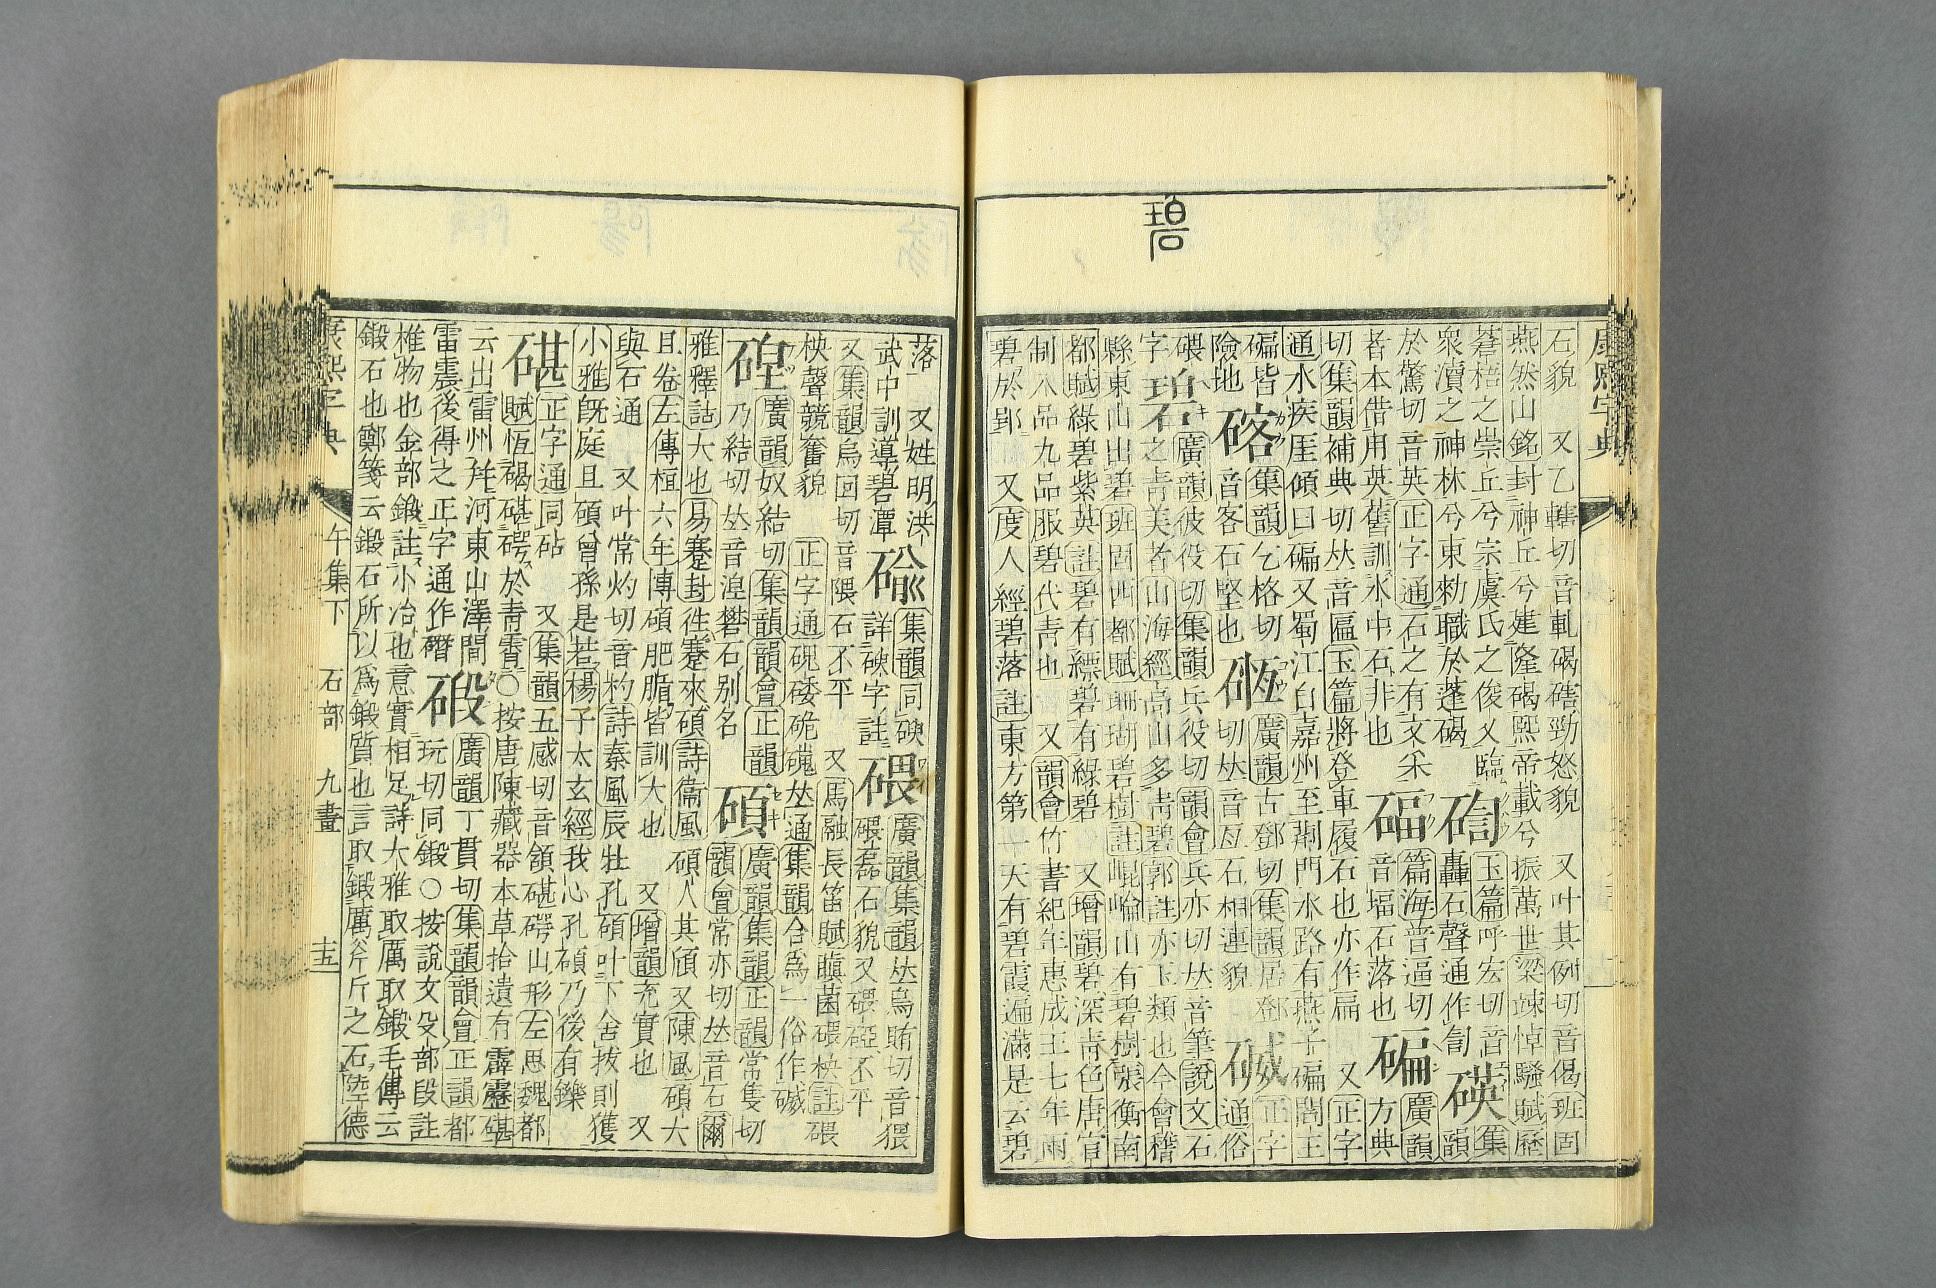 碧
康熙字典
石貌　又乙轄切音軋碣磍勁怒貌　又叶其例切音偈班固
燕然山銘封神丘兮建隆碣熙帝載兮振萬世梁竦悼騷賦歷
蒼梧之崇丘兮宗虞氏之俊乂臨硡玉篇呼宏切音碤集
衆瀆之神林兮東勑職於蓬碣轟石聲通作訇韻
於驚切音英正字通石之有文采篇海普逼切碥廣韻
者本借用英舊訓水中石非也音堛石落也方典
切集韻補典切𠀤音匾玉篇將登車履石也亦作扁　又正字
通水疾厓傾曰碥又蜀江自嘉州至荆門水路有燕子碥閻王
碥皆碦集韻乞格切廣韻古鄧切集韻居鄧正字
險地音客石堅也切𠀤音亙石相連貌通俗
碨字碧廣韻彼役切集韻兵役切韻會兵亦切𠀤音筆說文石
之靑美者山海經高山多靑碧郭註亦玉類也今會稽
縣東山出碧班固西都賦珊瑚碧樹註崐崘山有碧樹張衡南
都賦綠碧紫英註碧有縹碧有綠碧　又增韻碧深靑色唐官
制八品九品服碧代靑也　又韻會竹書紀年惠成王七年雨
碧於郢　又度人經碧落註東方第一天有碧霞遍滿是云碧
落　又姓明洪集韻同碝碨廣韻集韻𠀤烏賄切音猥
武中訓導碧潭詳碝字註碨磊石貌又碨砈不平
又集韻烏回切音隈石不平　又馬融長笛賦菌碨柍註碨
柍聲競奮貌　正字通磈硊𠀤通集韻合爲一俗作
廣韻奴結切集韻韻會正韻碩廣韻集韻正韻常隻切
乃結切𠀤音湼礬石別名韻會常亦切𠀤音石爾
雅釋詁大也易蹇封往蹇來碩詩衞風碩人其頎又陳風碩大
且卷左傳桓六年傳碩肥腯皆訓大也　又增韻充實也　又
與石通　又叶常灼切音杓詩秦風辰牡孔碩叶下舍拔則獲
小雅旣庭且碩曾孫是若楊子太玄經我心孔碩乃後有鑠
碪正字通同砧　又集韻五感切音顉碪碍山形左思魏都
賦恆碣碪碍於靑霄○按唐陳藏器本草拾遺有霹靂碪
云出雷州幷河東山澤閒碫廣韻丁貫切集韻韻會正韻都
雷震後得之正字通作玩切同鍛○按說文殳部段註
椎物也金部鍛註小冶也意實相足詩大雅取厲取鍛毛傳云
鍛石也鄭箋云鍛石所以爲鍛質也言取鍛厲斧斤之石陸德
康熙字典　午集下　石部　九畫